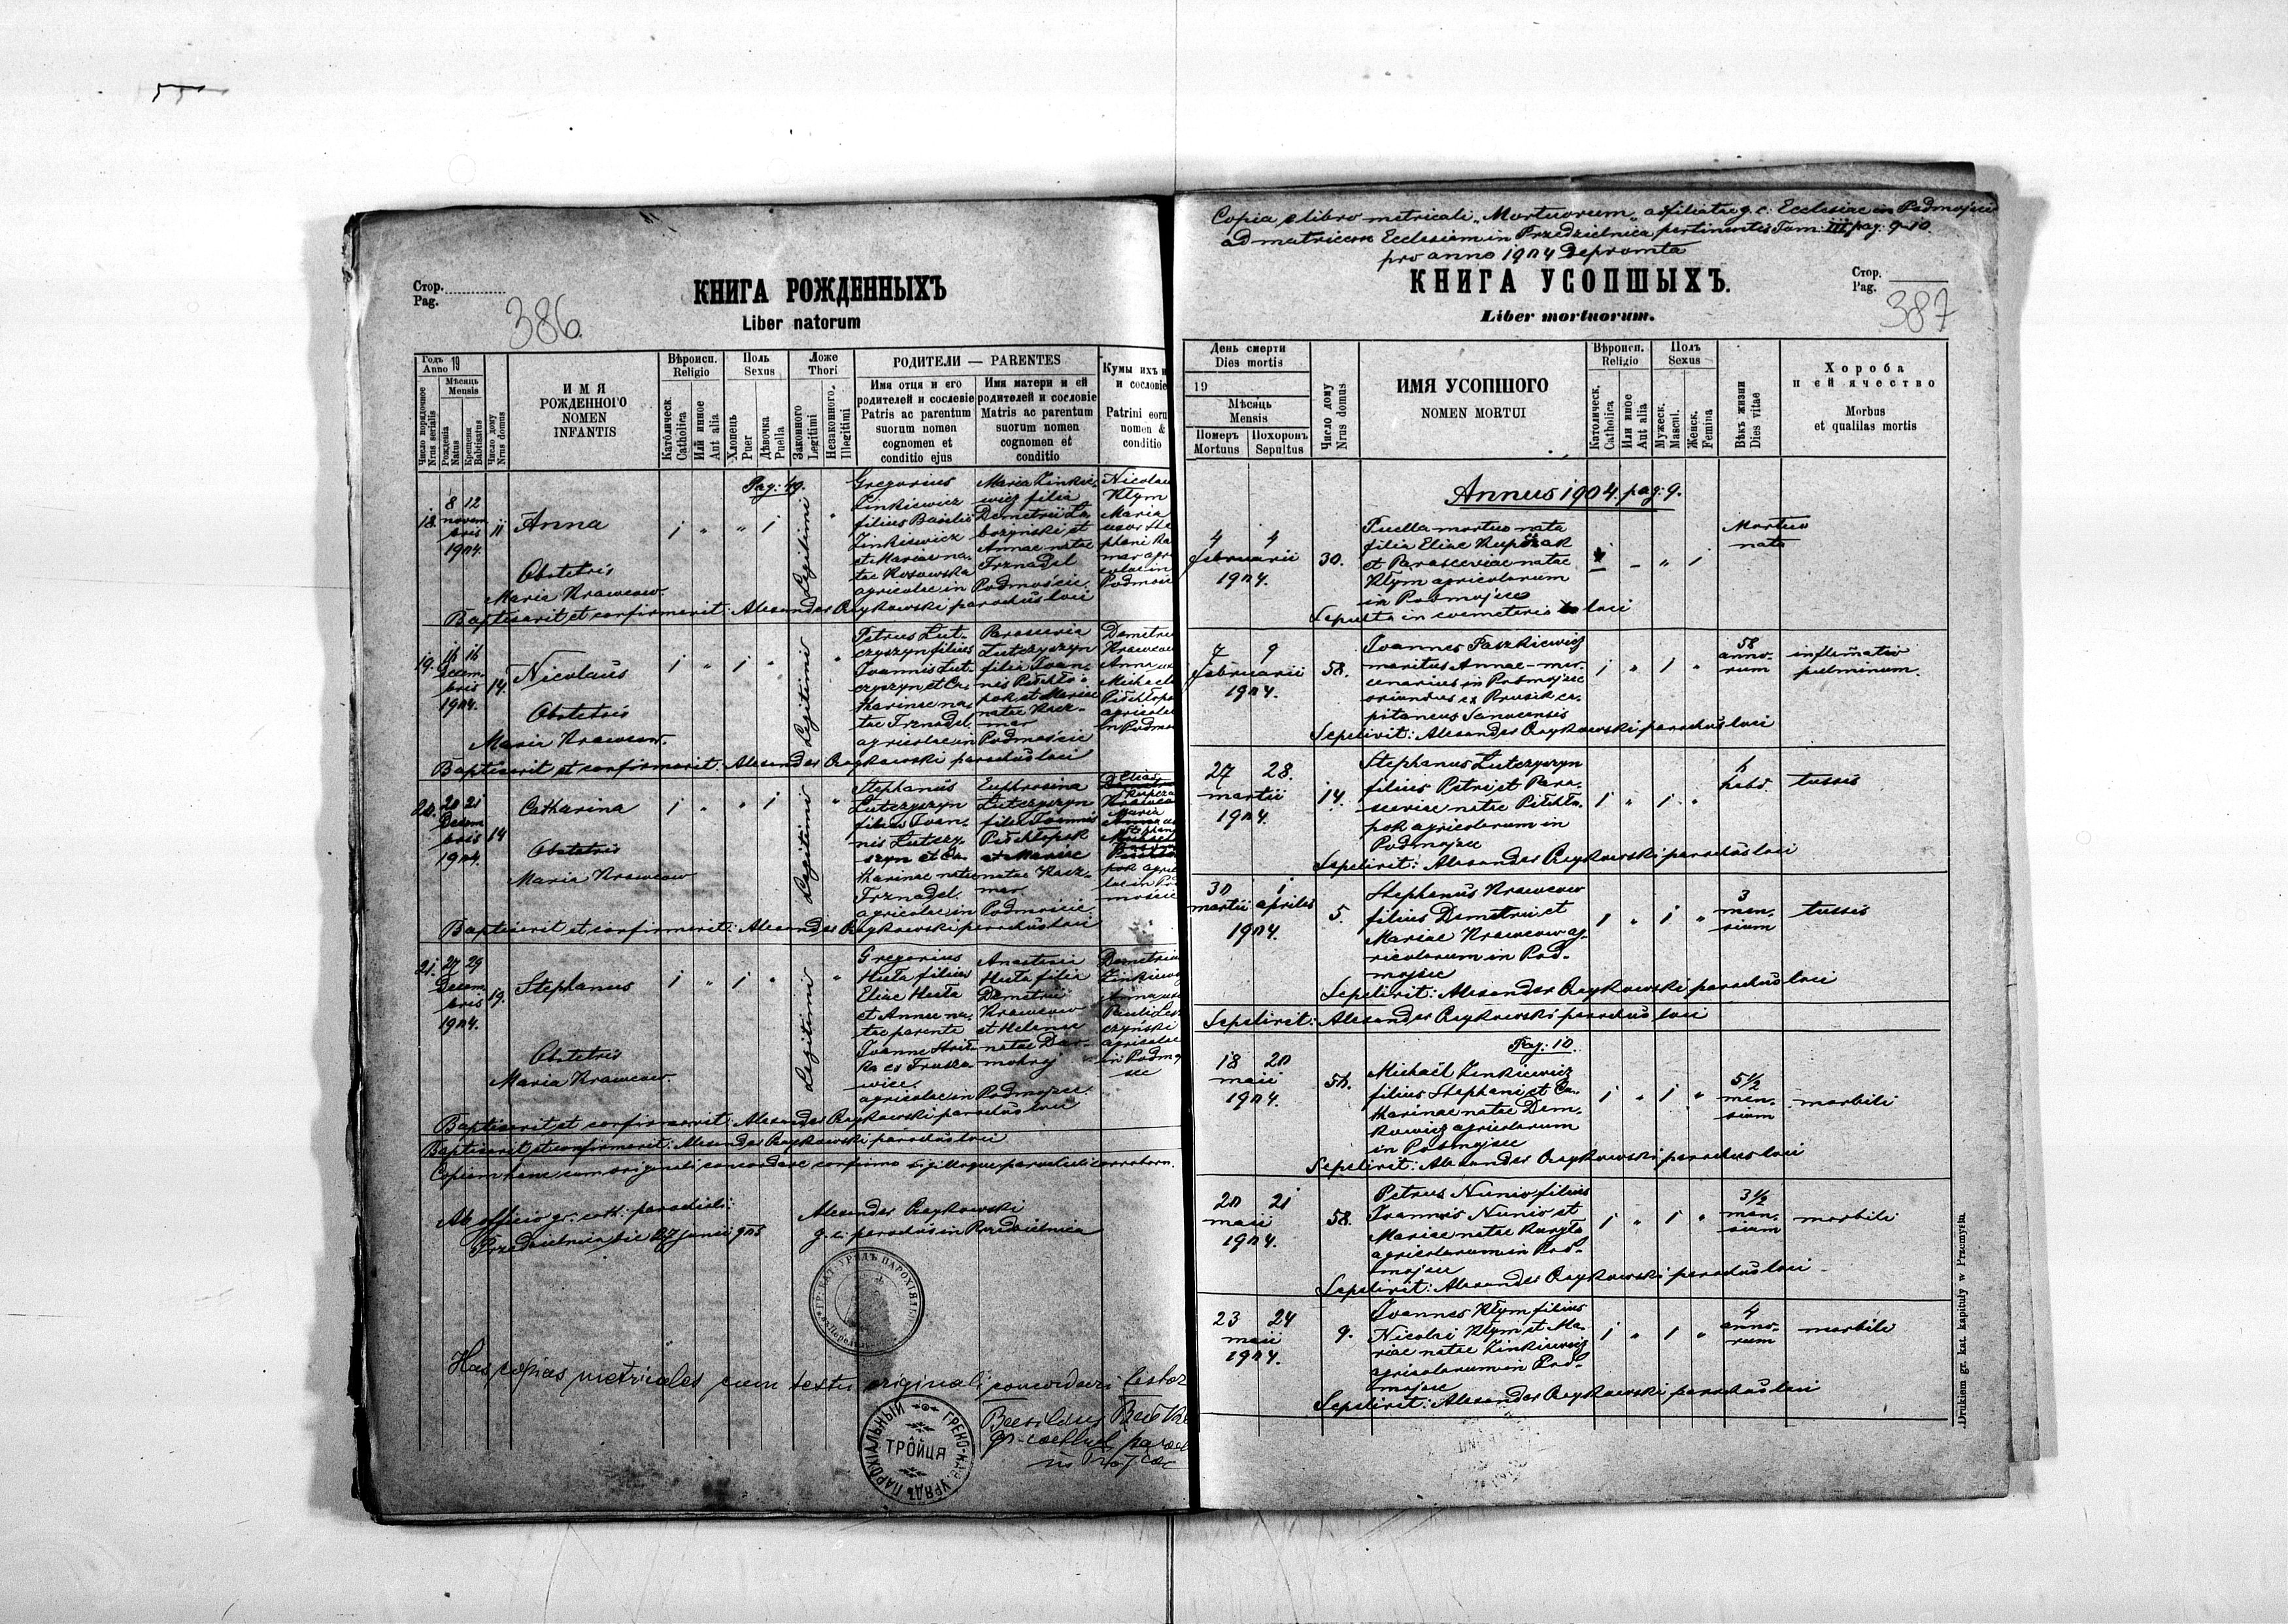 Стор.
Pag.
386
КНИГА РОЖДЕННЫХЪ
Liber natorum
Годъ 19
Anno
Мѣсяць
Mensis
Число порядочное
Nrus serialis
Рожденія
Natus
Крещенія
Baptisatus
Число дому
Nrus domus
ИМЯ
РОЖДЕННОГО
NOMEN
INFANTIS
Вѣроисп.
Religio
Католическ.
Catholica
Или инное
Aut alia
Поль
Sexus
Хлопець
Puer
Дѣвочка
Puella
Ложе
Thori
Законного
Legitimi
Незаконного.
Illegitimi
РОДИТЕЛИ — PARENTES
Имя отця и его
родителей и сословіе
Patris ac parentum
suorum nomen
cognomen et
conditio ejus
Имя матери и ей
родителей и сословіе
Matris ac parentum
suorum nomen
cognomen et
conditio
Кумы ихъ
и сословіе
Patrini
nomen &
conditio
Pag: 49.
18.
8 12
novem
bris
1904.
11
Anna
Obstetris
Maria Krawcow
1 " " 1
Legitimi
Gregorius
Zinkiewicz
filius Basilii
Zinkiewicz
et Mariae na-
tae Kosowska
agricolae in
Maria Zinkie-
wicz filia
Demetrii
et
Annae natae
Trznadel
Podmojsce
Nicolau
Kłym
Maria
uxor Ste
phani
Baptisavit et confirmavit: Alexander Czajkowski parochus loci
19.
16 16
Decem
bris
1904.
14.
Nicolaus
Obstetris
Maria Krawcow.
1 " 1 "
Legitimi
Petrus Lut-
czyszyn filius
Joannis Lut-
czyszyn et Ca-
tharinae na-
tae Trznadel
agricolae in
Parascevia
Lutczyszyn
filia Joan-
nis
pok et Mariae
natae Kacz-
mar
Podmojsce
Demetri
Krawcow
Anna
Michael
agricolae
in Podmo
Baptisavit et confirmavit: Alexander Czajkowski parochus loci
20.
20 21
Decem
bris
1904.
14
Catharina
Obstetris
Maria Krawcow
1 " " 1
Legitimi
Stephanus
Lutczyszyn
filius Joan-
nis Lutczy-
szyn et Ca-
tharinae natae
Trznadel
agricolae in
Euphrosina
Lutczyszyn
filia Joannis
et Mariae
natae Kacz-
mar
Podmojsce
Elias
Maria
Baptisavit et confirmavit: Alexander Czajkowski parochus loci
21.
27 29
Decem
bris
1904.
19.
Stephanus
Obstetris
Maria Krawcow.
1 " 1 "
Legitimi
Gregorius
Huta filius
Eliae Huta
et Annae na-
tae parente
Joanne
ex Truska-
wiec
agricolae in
Anastasia
Huta filia
Demetrii
Krawcow
et Helenae
natae
Podmojsce
Demetrius
Zinkiewicz
Anna
Pauli
agricolae
in Podmoj
sce
Baptisavit et confirmavit: Alexander Czajkowski parochus loci
Baptisavit et confirmavit: Alexander Czajkowski parochus loci
Copiam hanc cum originali concordare confirmo sigilloque parochiali corroboro.
Ab officio gr. cath. parochiali:
Przedzielnica die 27 Junii 905
Alexander Czajkowski
g. c. parochus in Przedzielnica
Has copias metricales cum textu originali concordari testor
gr-cathol. paroch
ТРОЙЦЯ
ГРЕКО-КАТ. УРЯДЪ ПАРОХІЯЛЬНЫЙ
Copia e libro metricali "Mortuorum" adfiliatae g. c. Ecclesiae in Podmojsce
ad matricem Ecclesiam in Przedzielnica pertinentis Tom: III pag: 9-10.
pro anno 1904 depromta
КНИГА УСОПШЫХЪ.
Liber mortuorum.
Стор.
Pag.
387
День смерти
Dies mortis
19
Мѣсяць
Mensis
Померъ
Mortuus
Похоронъ
Sepultus
Число дому
Nrus domus
ИМЯ УСОПШОГО
NOMEN MORTUI
Вѣроисп.
Religio
Католическ.
Catholica
Или иное
Aut alia
Полъ
Sexus
Мужеск.
Mascul.
Женск.
Femina
Вѣкъ жизни
Dies vitae
Хороба
и ей ячество
Morbus
et qualilas mortis
Annus 1904. pag: 9.
4 4
februarii
1904.
30.
Puella mortuo nata
filia Eliae
et Parasceviae natae
Kłym agricolarum
in Podmojsce
1 " " 1
Mortuo
nata
Sepulta in coemeterio loci
7 9
februarii
1904.
58.
Joannes Paszkiewicz
maritus Annae - mer-
cenarius in Podmojsce
oriundus ex Prusiek ca-
pitaneus Sanocensis
1 " 1 "
58
anno-
rum
inflamatio
pulminum.
Sepelivit: Alexander Czajkowski parochus loci
27 28.
martii
1904.
14.
Stephanus Lutczyszyn
filius Petri et Para-
sceviae natae
pok agricolarum in
Podmojsce
1 " 1 "
tussis
Sepelivit: Alexander Czajkowski parochus loci
30 1
martii aprilis
1904.
5.
Stephanus Krawcow
filius Demetrii et
Mariae Krawcow ag-
ricolarum in Pod-
mojsce
1 " 1 "
3
men-
sium
tussis
Sepelivit: Alexander Czajkowski parochus loci
Sepelivit: Alexander Czajkowski parochus loci
Pag: 10.
18 20
maii
1904.
Michaël Zinkiewicz
filius Stephani et Ca-
tharinae natae Dem-
kowicz agricolarum
in Podmojsce
1 " 1 "
5 1/2
men-
sium
morbili
Sepelivit: Alexander Czajkowski parochus loci
20 21
maii
1904.
58.
Petrus Nunio filius
Joannis Nunio et
Mariae natae
agricolarum in Pod-
mojsce
1 " 1 "
3 1/2
men-
sium
morbili
Sepelivit: Alexander Czajkowski parochus loci
23 24
maii
1904.
9.
Joannes Kłym filius
Nicolai Kłym et Ma-
riae natae Zinkiewicz
agricolarum in Pod-
mojsce
1 " 1 "
4
anno-
rum
morbili
Sepelivit: Alexander Czajkowski parochus loci
Drukiem gr. kat. kapituły w Przemyślu.